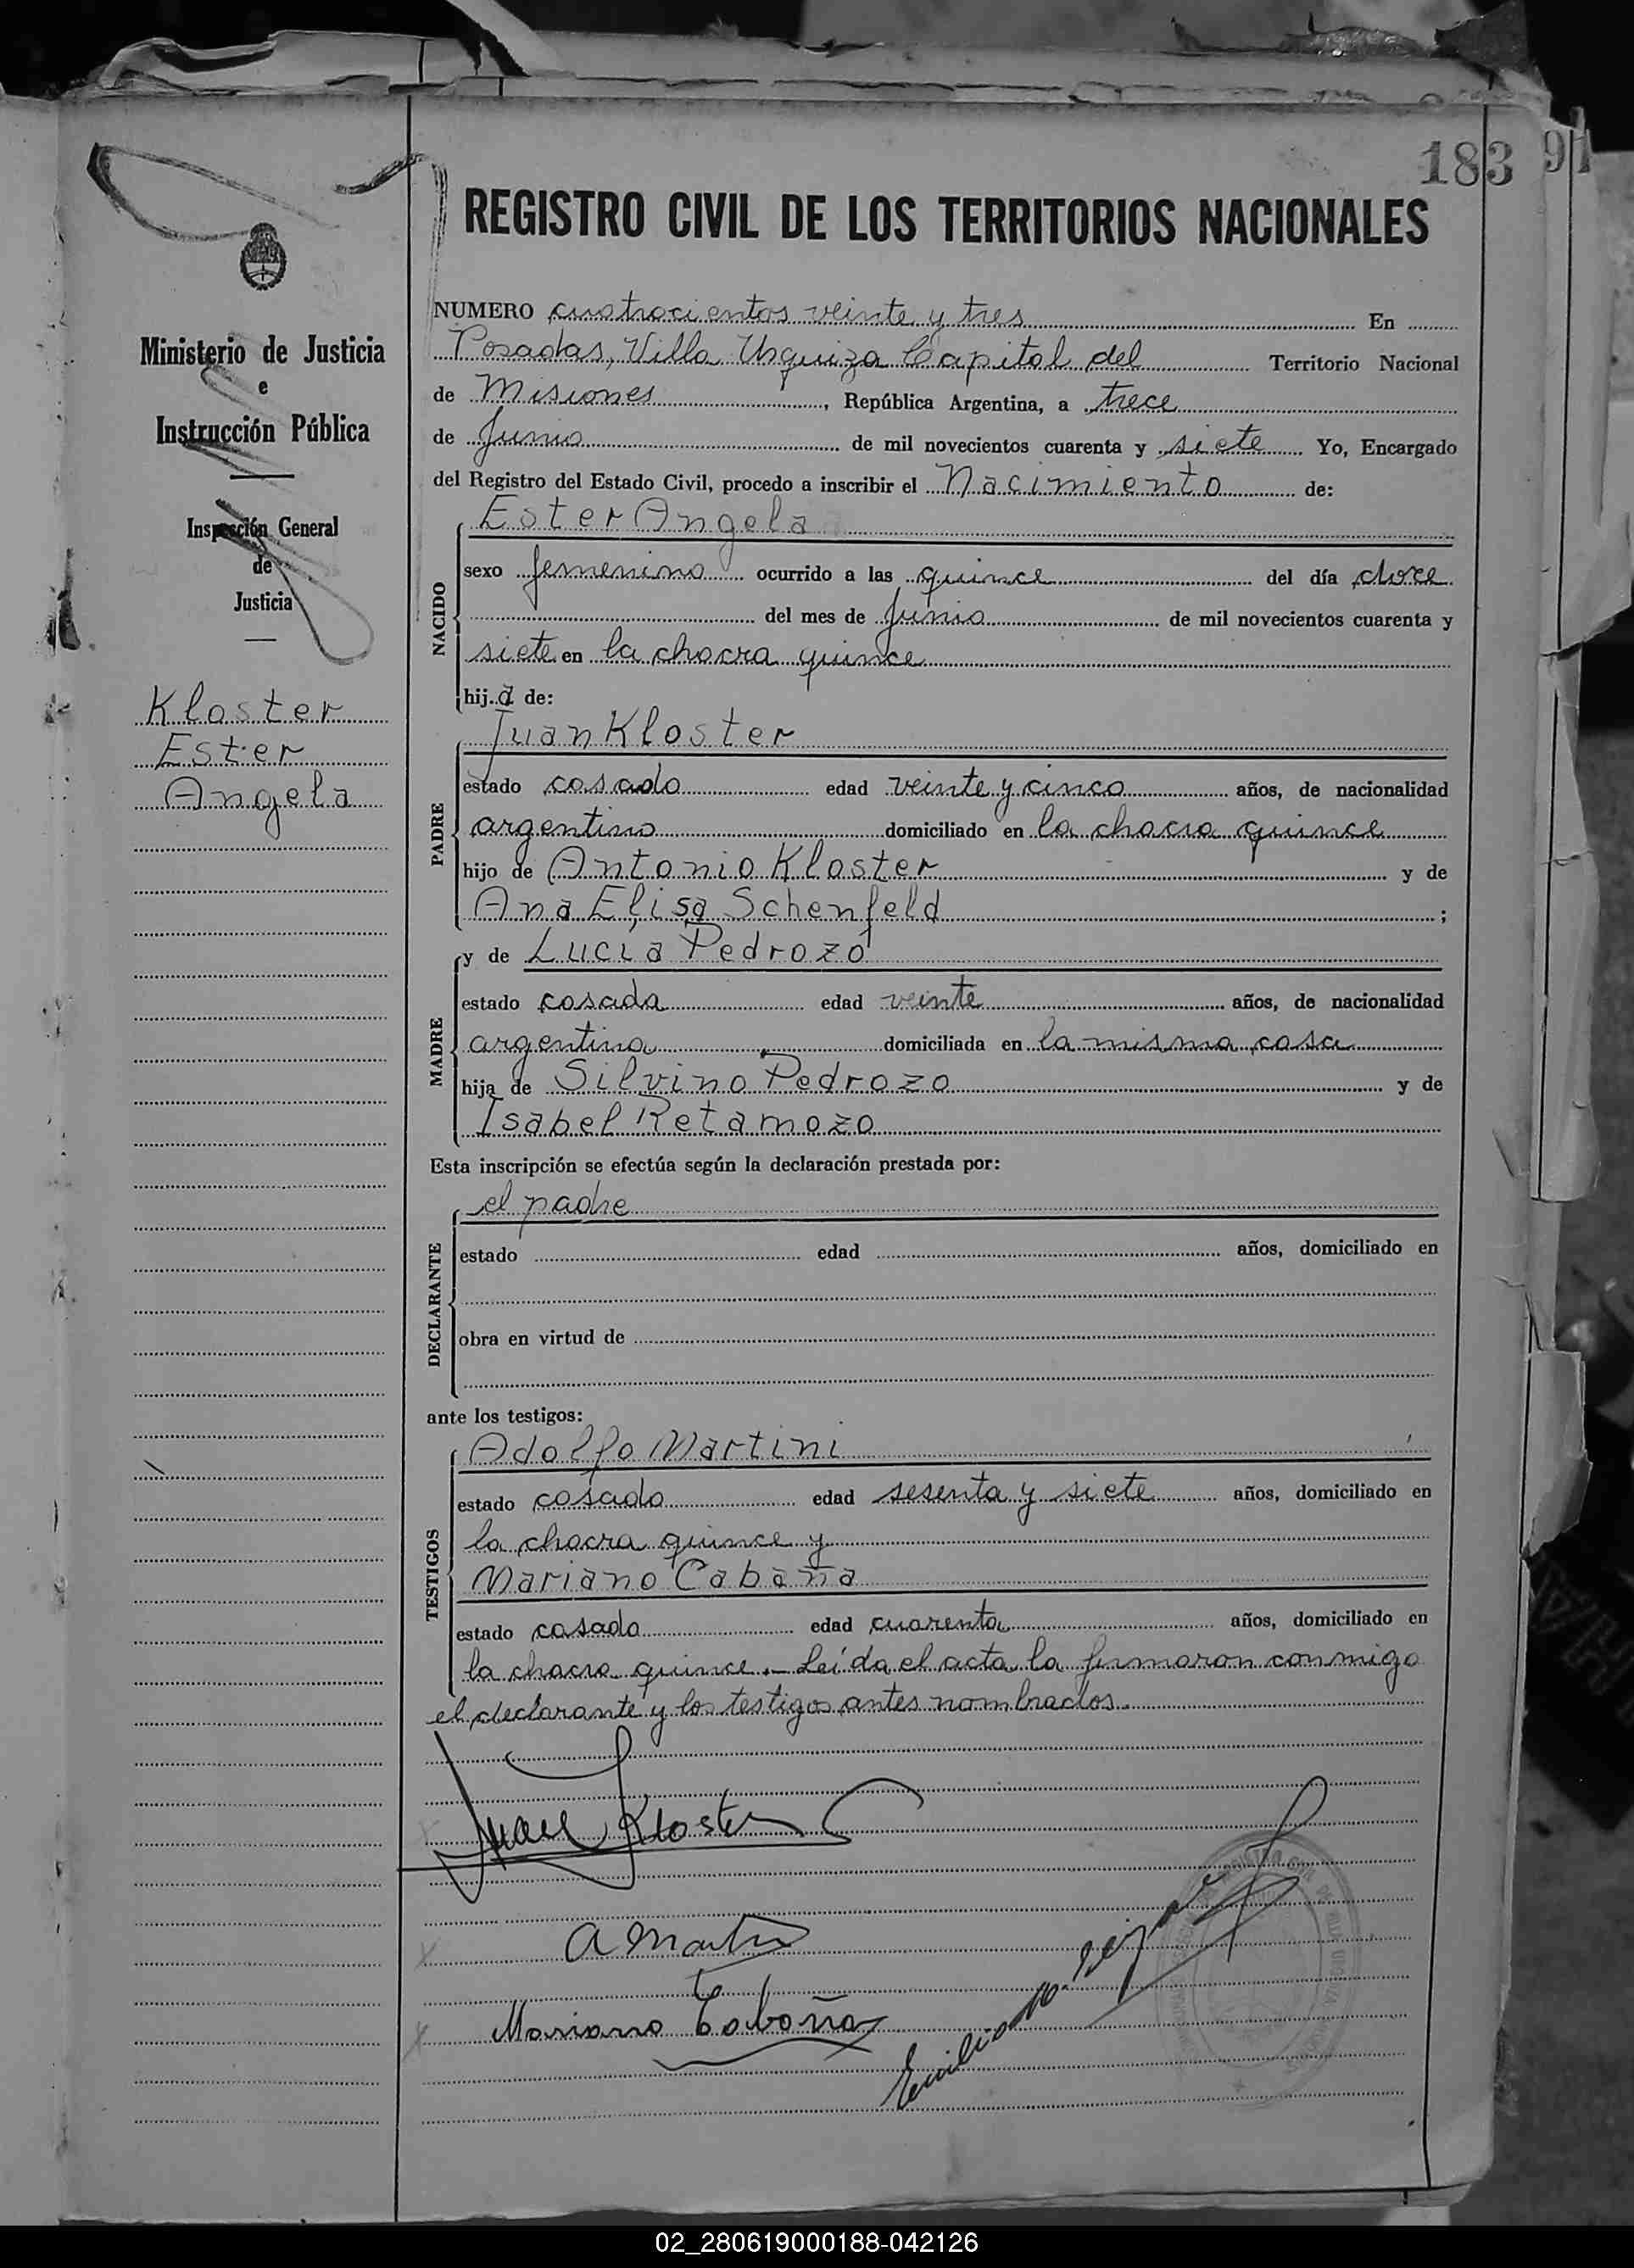 183 91
REGISTRO CIVIL DE LOS TERRITORIOS NACIONALES
Ministerio de Justicia
e
Instrucción Pública
Inspección General
de
Justicia
Kloster
Ester
Angela
NUMERO cuatrocientos veinte y tres En
Posadas, Villa Urquiza Capital del Territorio Nacional
de Misiones, República Argentina, a trece
de Junio de mil novecientos cuarenta y siete Yo, Encargado
del Registro del Estado Civil, procedo a inscribir el Nacimiento de:
NACIDO
Ester Angela
sexo femenino ocurrido a las quince del día doce
del mes de Junio de mil novecientos cuarenta y
siete en la chacra quince
hija de:
PADRE
Juan Kloster
estado casado edad veinte y cinco años, de nacionalidad
argentino domiciliado en la chacra quince
hijo de Antonio Kloster y de
Ana Elisa Schenfeld;
MADRE
y de Lucía Pedrozo
estado casada edad veinte años, de nacionalidad
argentina domiciliada en la misma casa
hija de Silvino Pedrozo y de
Isabel Retamozo
Esta inscripción se efectúa según la declaración prestada por:
DECLARANTE
el padre
estado edad años, domiciliado en
obra en virtud de
ante los testigos:
TESTIGOS
Adolfo Martini
estado casado edad sesenta y siete años, domiciliado en
la chacra quince y
Mariano Cabaña
estado casado edad cuarenta años, domiciliado en
la chacra quince.- Leída el acta la firmaron conmigo
el declarante y los testigos antes nombrados.
Juan Kloster
A Martini
Mariano Cabaña
Emilio
02_280619000188-042126